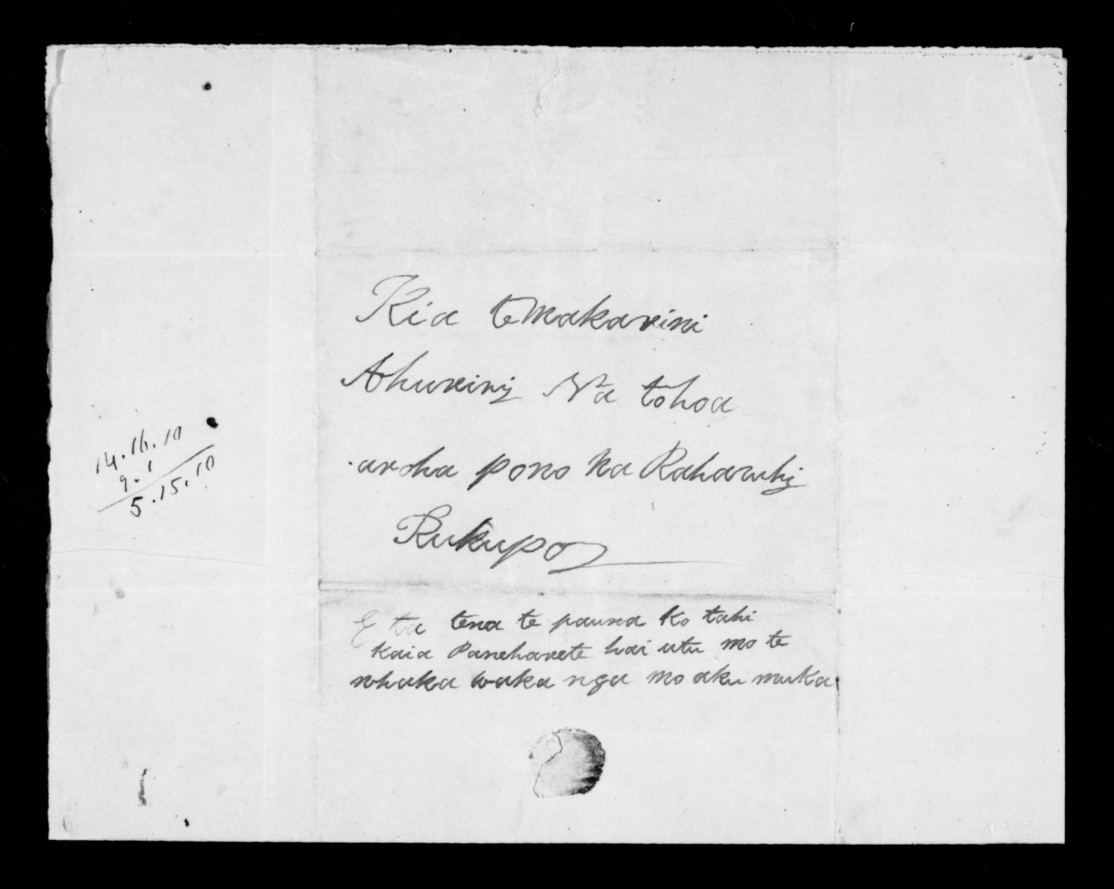 Kia te Makarini
Ahuriri Na tohoa
aroha pono Na Raharuhi
Rukupo
E ta tena te pauna ko tahi
kaia Paneharete hai utu mo te
whaka waka nga mo aku muka
14.16.10
9.1
5.15.10